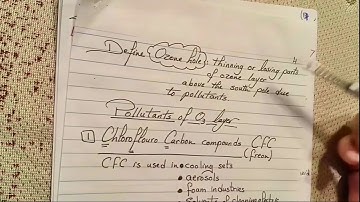 Define Ozone hole: thinning or losing parts
of ozone layer
above the south pole due
to pollutants.
Pollutants of O3 layer
1 Chloroflouro Carbon compounds CFC
(freon)
CFC is used in • cooling sets
• aerosols
• foam industries